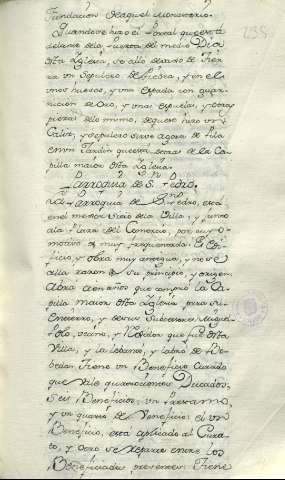 fundación de aquel Monasterio.
Quando se hizo el Portal que está
delante de la Puerta del medio Dia
de esta Iglesia, se alló debaxo de tier
ra vn Sepulcro de Piedra, y en el
vnos huesos, y vna espada con guar
nición de oro, y vnas espuelas, y otras
piezas de lo mismo, de que se hizo vn
Caliz, y el sepulcro sirve agora de Pila
en vn Jardin que está detras de la Ca
pilla maior de esta Iglesia.
Parroquia de S. Pedro.
La Parroquia de San Pedro, está
en el mejor sitio de la Villa, y junto
a la Plaza del Comercio, por cuyo
motivo es muy frequentada. El edi
ficio, y obra muy antigua, y no se
alla razon de su principio, y origen.
Abrá cien años que compró la Ca
pilla maior de esta Iglesia para su
entierro, y de sus Subcesores Miguel
Polo, vecino, y Rexidor que fue de esta
Villa, y la
Tiene vn Beneficio Curado
que vale quatrocientos Ducados.
Seis Beneficios, vn Prestamo,
y vn quarto de Beneficio: el vn
Beneficio, está aplicado al Cura
to, y otro se reparte entre los
Beneficiados presentes. Tiene